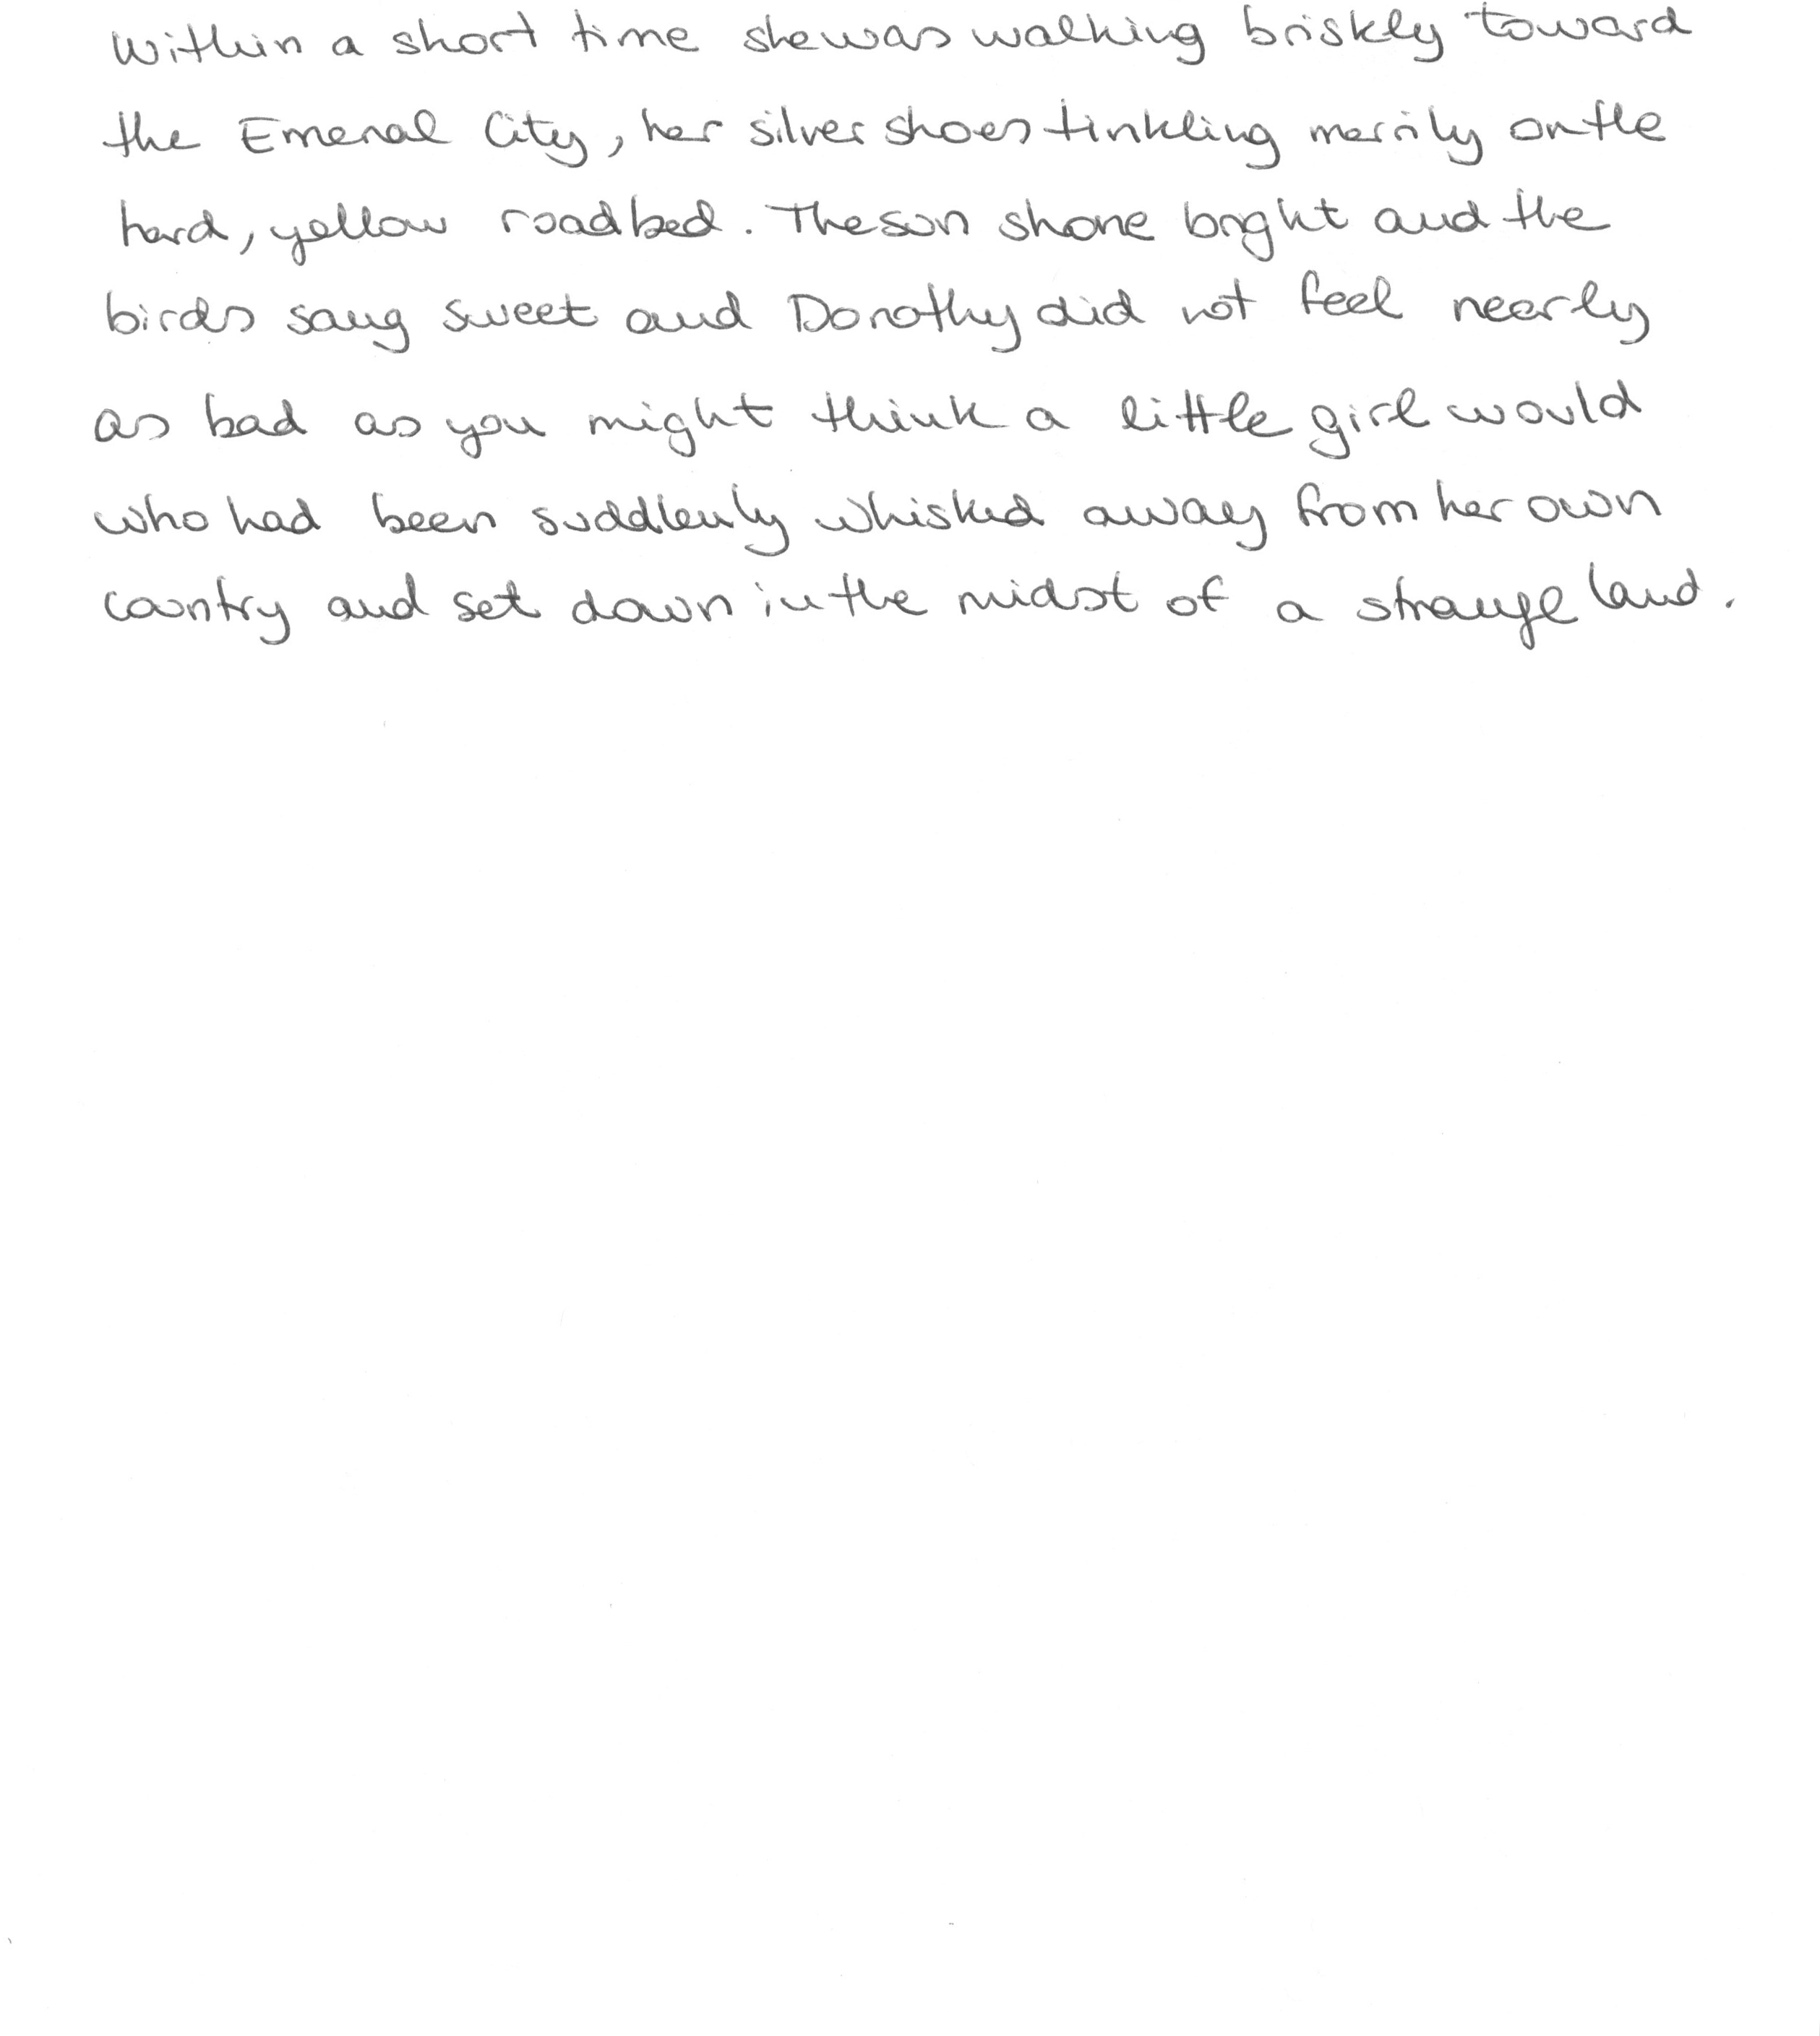 Within a short time she was walking briskly toward
the Emeral City, her silver shoes tinkling merrily on the
hard, yellow roadbed. The sun shone bright and the
birds sang sweet and Dorothy did not feel nearly
as bad as you might think a little girl would
who had been suddlenly whisked away from her own
country and set down in the midst of a strange land.